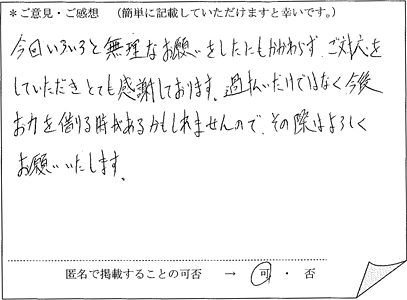 ＊ご意見・ご感想　（簡単に記載していただけますと幸いです。）
今回いろいろと無理なお願いをしたにもかかわらず、ご対応を
していただきとても感謝しております。過払いだけではなく今後
お力を借りる時があるかもしれませんので、その際はよろしく
お願いいたします。
匿名で掲載することの可否　→　可　・　否